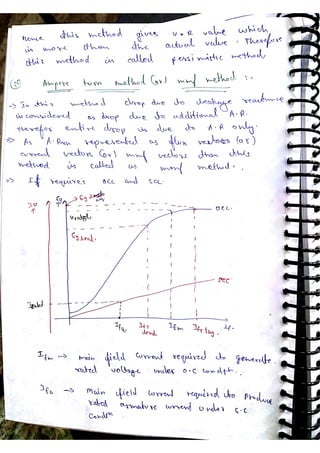 Hence this method gives V.R value which
is more than the actual value. Therefore
this method is called pessimistic method.
Ampere turn method (or) mmf method :-
→ In this method drop due to leakage reactance
is considered as drop due to additional A.R.
therefor entire drop is due to A.R only.
→ As A.R represented as flux vectors (or)
current vectors (or) mmf vectors than this
method is called as mmf method.
→ It requires OCC and SCC.
OCC
Vrated
Eg lead
SCC
Irated
Ifa
If1 lead
Ifm
If1 lag.
If→
Ifm → main field current required to generate
rated voltage under O.C condtn.
Ifa → Main field current required to produce
rated armature current under S.C.
Condtn